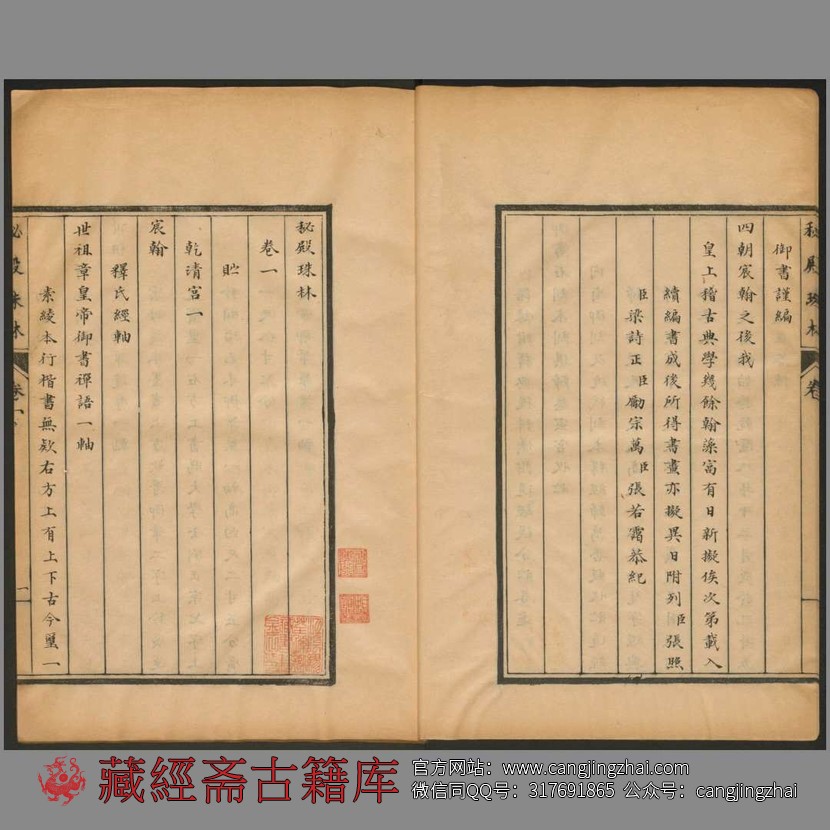 秘殿珠林
卷
御書謹編
四朝宸翰之後我
皇上稽古典學幾餘翰染富有日新擬俟次第載入
續編書成後所得書畫亦擬異日附列臣張照
臣梁詩正臣勵宗萬臣張若靄恭紀
秘殿珠林
卷一
貯
乾清宮一
宸翰
釋氏經軸
世祖章皇帝御書禪語一軸
素綾本行楷書無款右方上有上下古今璽一
秘殿珠林
卷一
一
藏經斋古籍库
官方网站：www.cangjingzhai.com
微信同QQ号：317691865 公众号：cangjingzhai